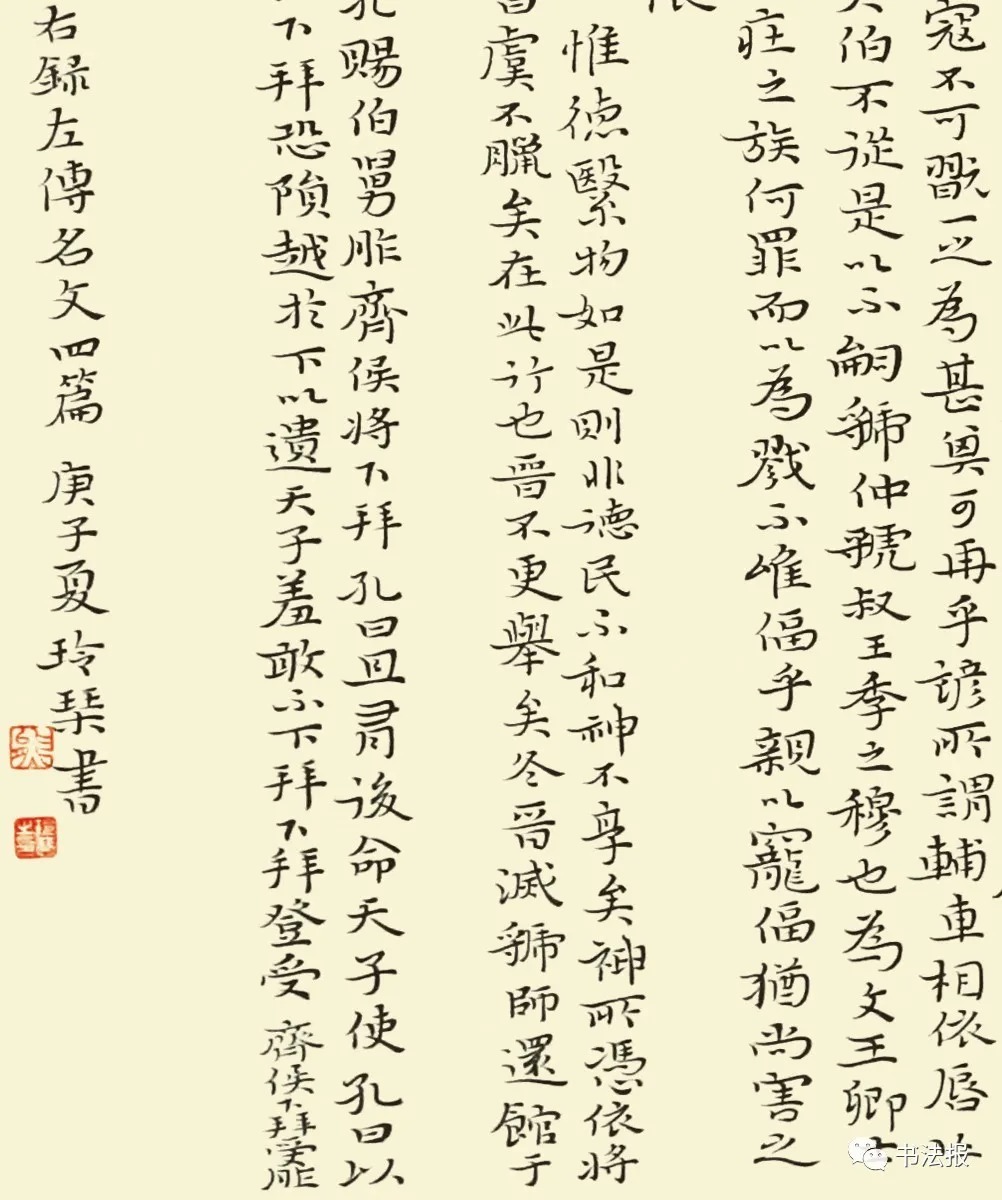 寇不可翫一之為甚其可再乎諺所謂輔車相依唇
伯不從是以不嗣虢仲虢叔王季之穆也為文王卿
莊之族何罪而以為戮不唯偪乎親以寵偪猶尚害之
惟德繄物如是則非德民不和神不享矣神所憑依將
虞不臘矣在此行也晉不更舉矣冬晉滅虢師還館于
孔賜伯舅胙齊侯將下拜孔曰且有後命天子使孔曰以
下拜恐隕越於下以遺天子羞敢不下拜下拜登受 齊侯下拜受胙
右録左傳名文四篇 庚子夏玲琹書
书法报